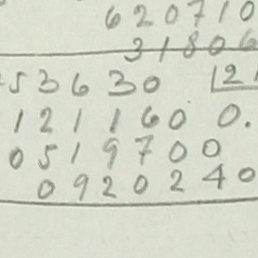 620710
31806
53630 21
1211600.
0519700
0920240